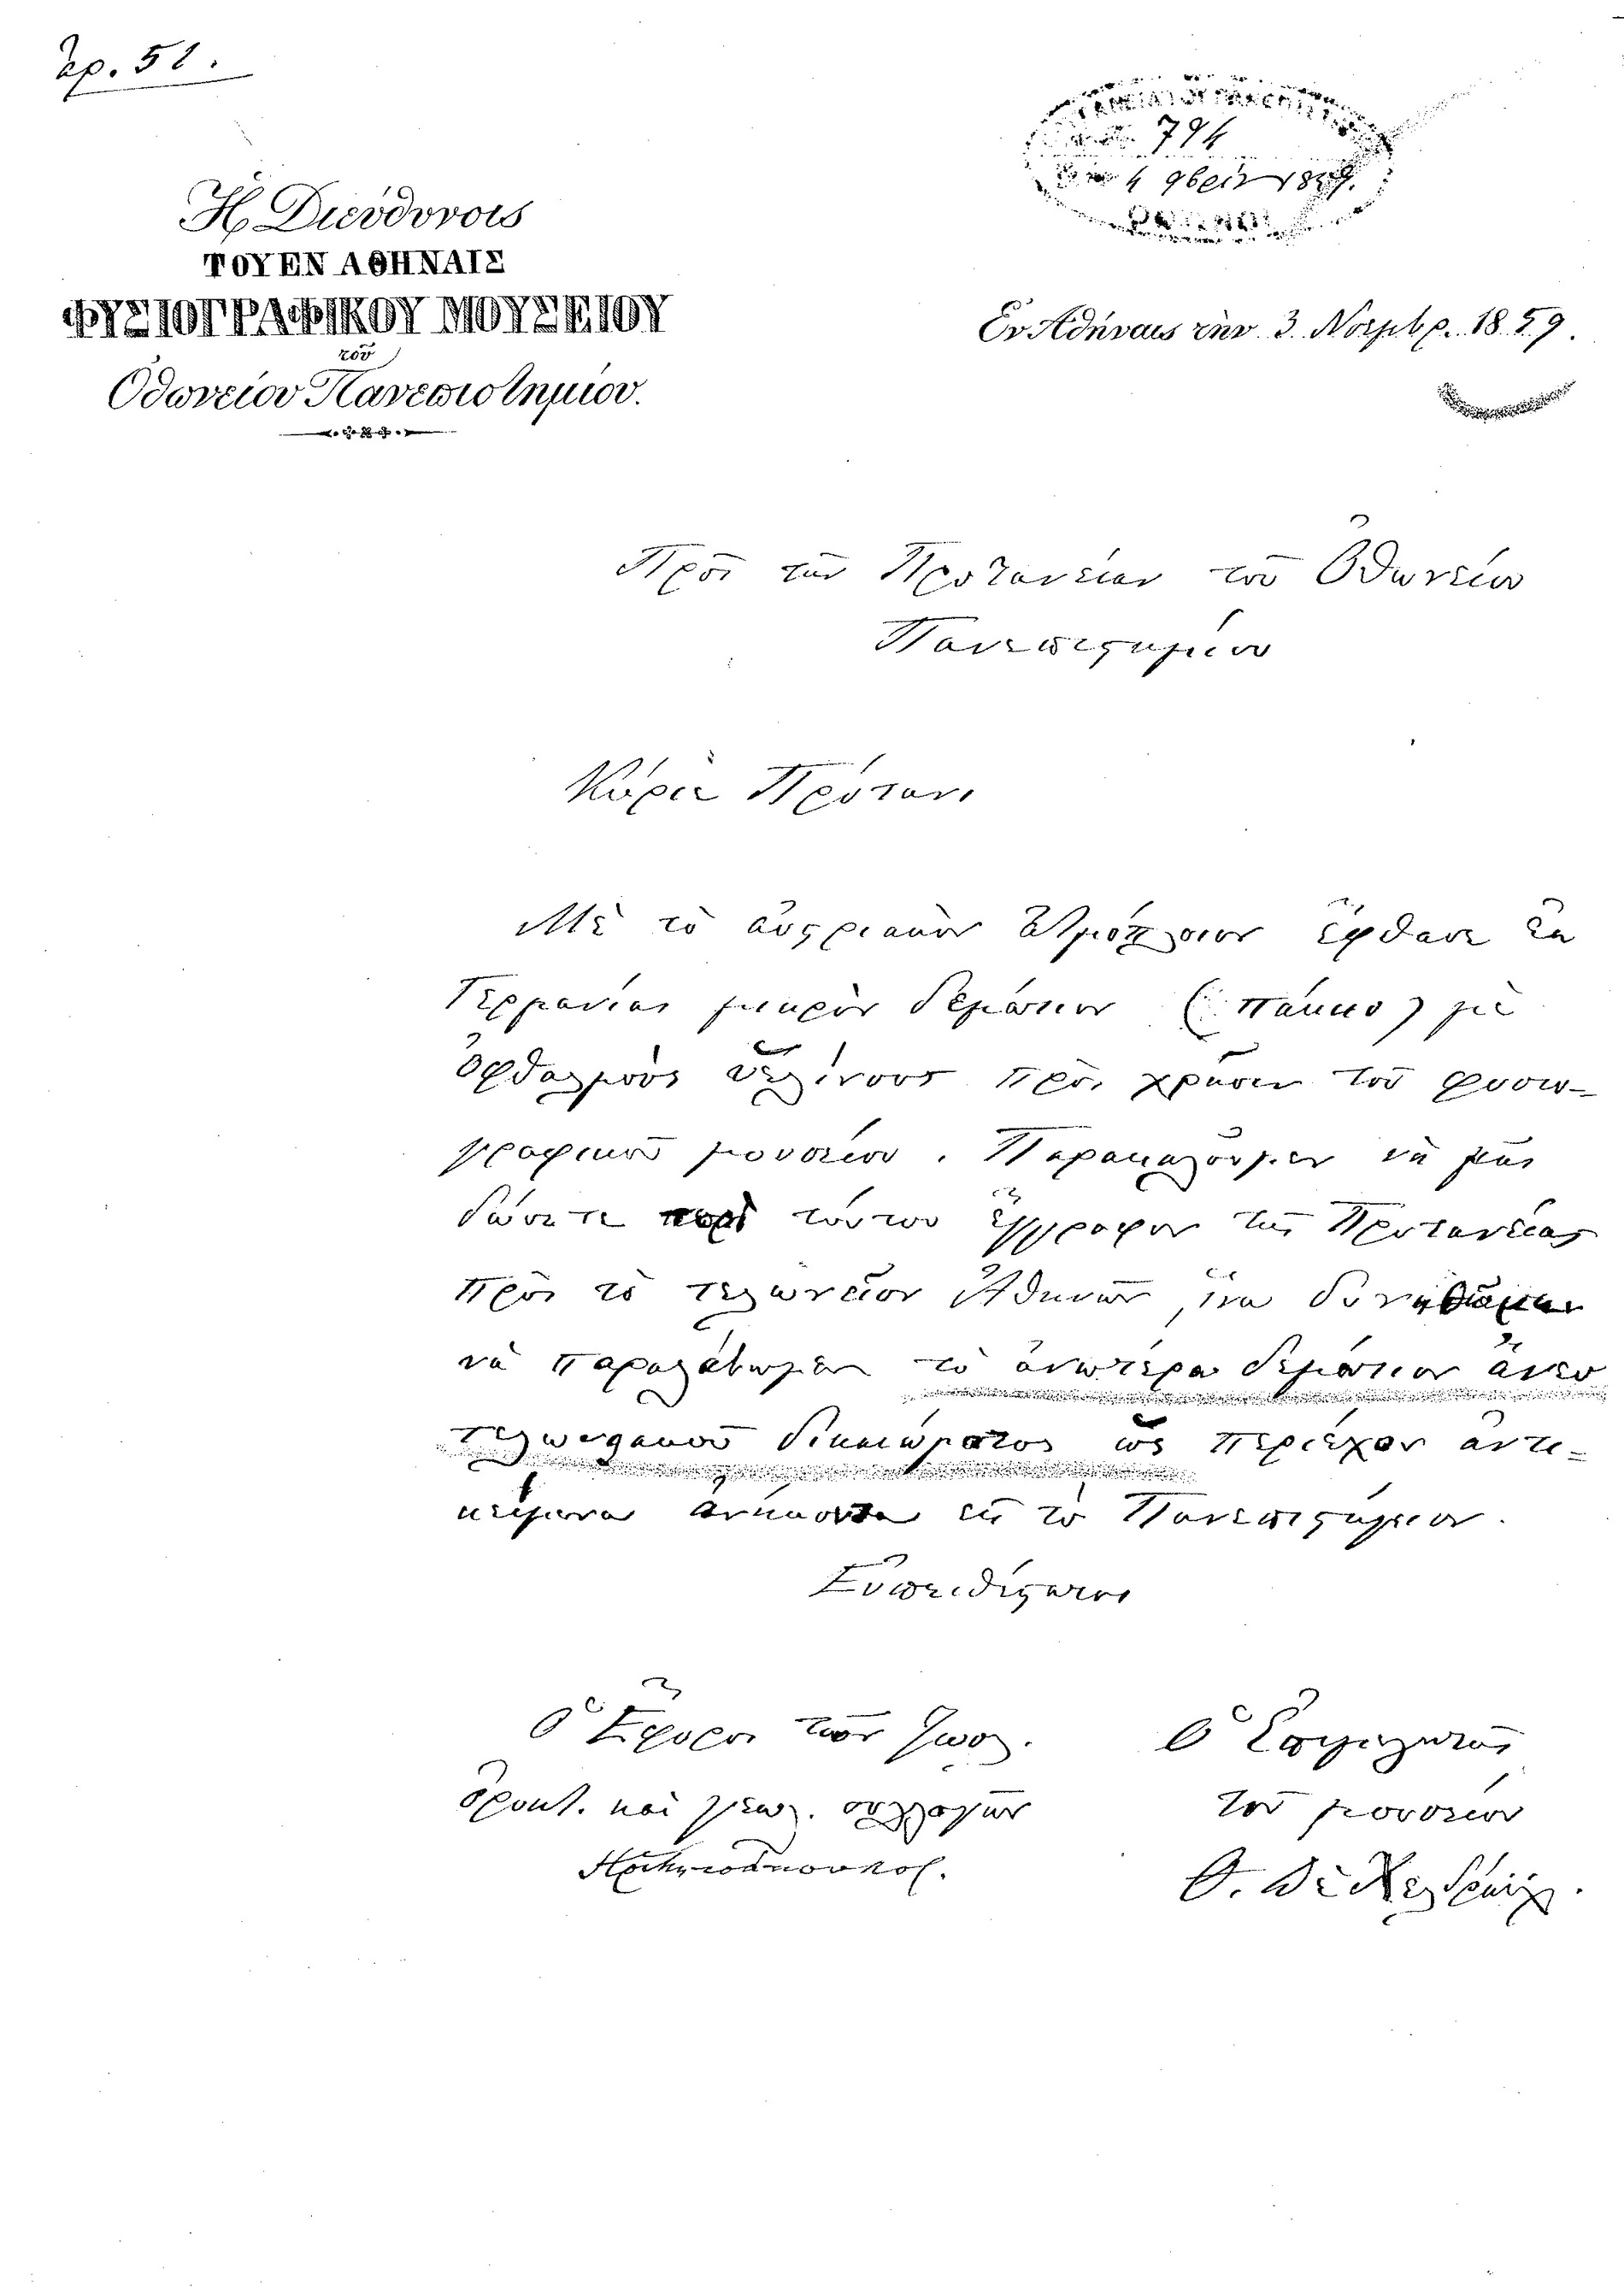 ἀρ. 51.
794
4 9βρίου 1859.
Ἡ Διεύθυνσις
ΤΟΥ ΕΝ ΑΘΗΝΑΙΣ
ΦΥΣΙΟΓΡΑΦΙΚΟΥ ΜΟΥΣΕΙΟΥ
τοῦ
Ὀθωνείου Πανεπιστημίου.
Ἐν Ἀθήναις τὴν 3 Νοεμβρ. 1859.
Πρὸς τὴν Πρυτανείαν τοῦ Ὀθωνείου
Πανεπιστημίου
Κύριε Πρύτανι
Μὲ τὸ αὐστριακὸν ἀτμόπλοιον ἔφθασε ἐκ
Γερμανίας μικρὸν δεμάτιον (πάκκο) μὲ
ὀφθαλμοὺς ὑελίνους πρὸς χρῆσιν τοῦ φυσιο-
γραφικοῦ μουσείου. Παρακαλοῦμεν νὰ μᾶς
δώσητε περὶ τούτου ἔγγραφον τῆς Πρυτανείας
πρὸς τὸ τελωνεῖον Ἀθηνῶν, ἵνα δυνηθῶμεν
νὰ παραλάβωμεν τὸ ἀνωτέρω δεμάτιον ἄνευ
τελωνιακοῦ δικαιώματος ὡς περιέχον ἀντι-
κείμενα ἀνήκοντα εἰς τὸ Πανεπιστήμιον.
Εὐπειθέστατοι
Ὁ Ἔφορος τῶν ζωολ.
ὀρυκτ. καὶ γεωλ. συλλογῶν
Ὁ Ἐπιμελητὴς
τοῦ μουσείου
Θ. δε Χελδράιχ.